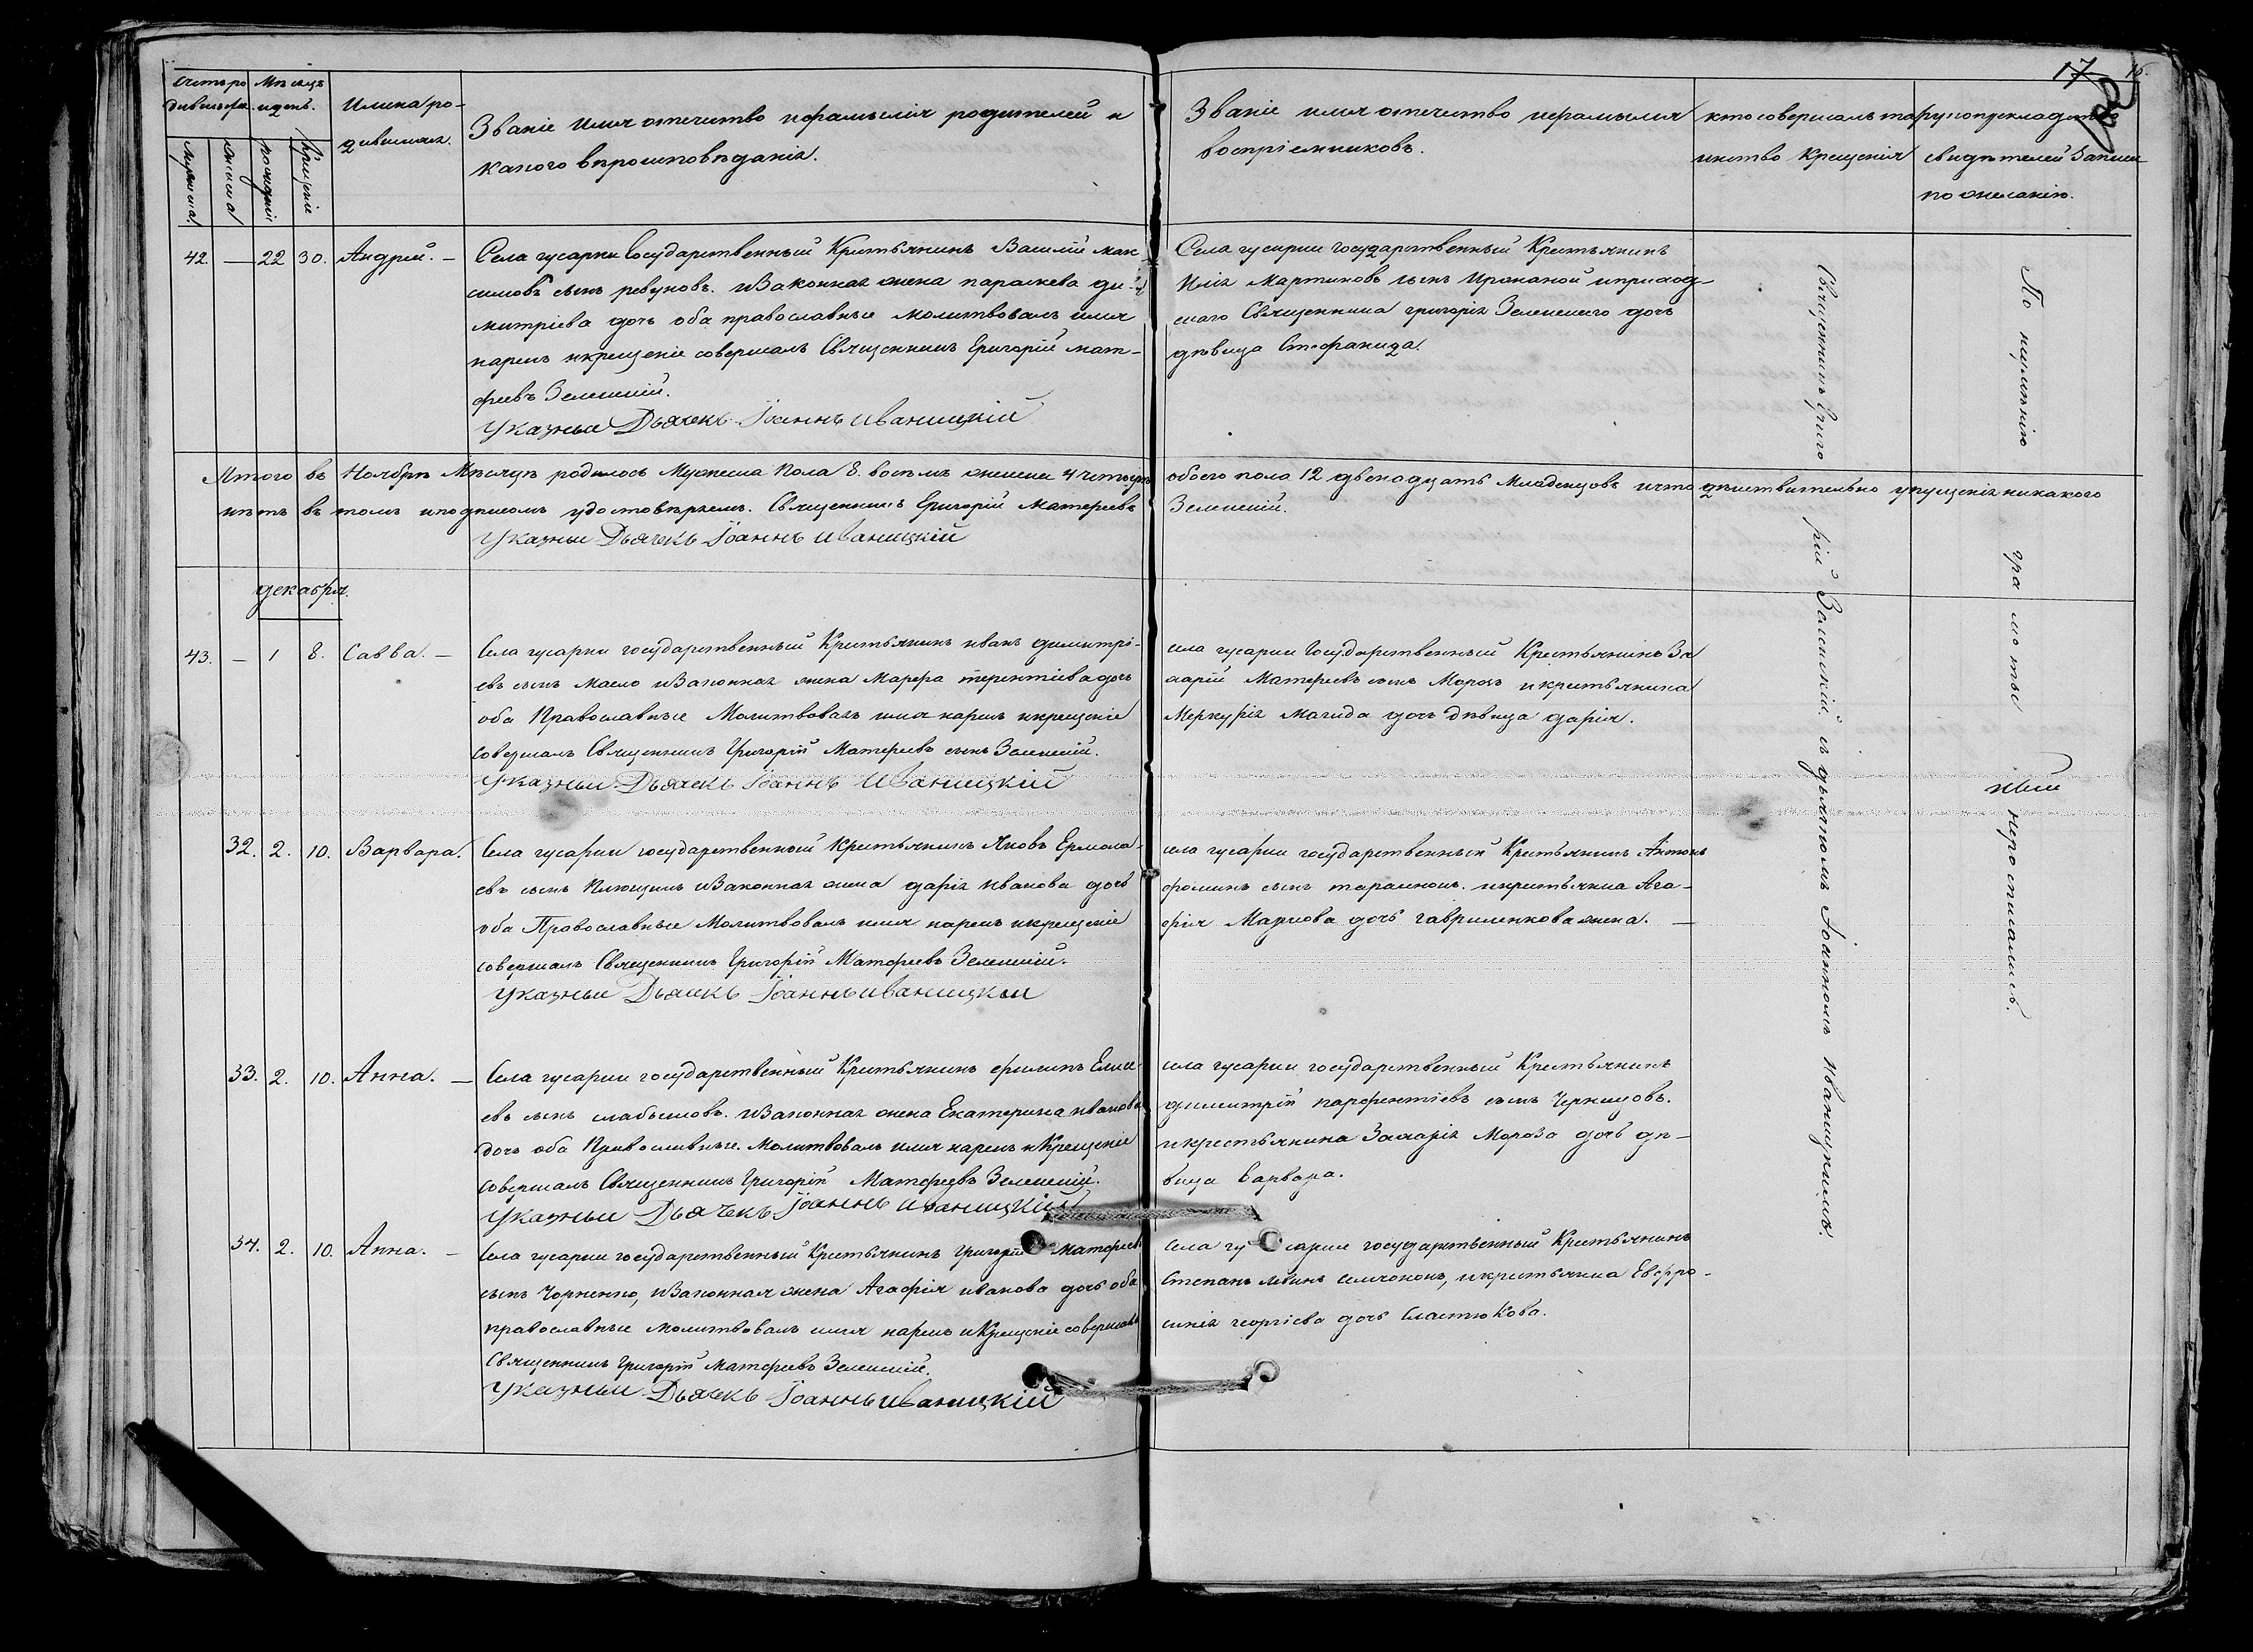 17 16.
Счетъ ро Мѣсяцъ
дившихся. и день. Имена ро-
дившихся.
Мужеска
Женска
рожденія
крещенія
Званіе имя отечество ифамилія родителей и
какого вѣроисповѣданія.
Званіе имя отечество ифамилія
воспріемниковъ.
кто совершалъ та
инство крещенія
рукоприкладство
свидѣтелей записи
по желанію.
42. — 22 30. Андрей. —
Села гусарки Государственный Крестьянинъ Василій мак
симовъ сынъ ревуновъ. иЗаконная жена параскева ди-
митріева дочь оба православные молитвовалъ имя
нарекъ икрещеніе совершалъ Священникъ Григорій мат-
феевъ Зеленскій.
Указные Дьячекъ Іоаннъ Иваницкій
Села гусарки государственный Крестьянинъ
Илія Мартиновъ сынъ иприход-
скаго Священника григорія Зеленскаго дочь
дѣвица Стефанида.
Итого въ Ноябрѣ Мѣсяцѣ родилось Мужеска Пола 8. восемь женска 4 четыре
обоего пола 12 двенадцать Младенцовъ ичто дѣйствительно упущенія никакого
нѣтъ въ томъ иподписомъ удостовѣряемъ. Священникъ Григорій Матфеевъ
Зеленскій.
Указные Дьячекъ Іоаннъ Иваницкій
декабря.
43. — 1 8. Савва. —
Села гусарки государственный Крестьянинъ иванъ димитрі-
евъ сынъ Масло иЗаконная жена Марфа терентіева дочь
оба Православные Молитвовалъ имя нарекъ икрещеніе
совершалъ Священникъ Григорій Матфеевъ сынъ Зеленскій.
Указные Дьячекъ Іоаннъ Иваницкій
села гусарки Государственный Крестьянинъ За
харій Матфеевъ сынъ Морозъ икрестьянина
Меркурія дочь дѣвица дарія.
32. 2. 10. Варвара.
Села гусарки государственный Крестьянинъ Яковъ Ермола-
евъ сынъ иЗаконная жена дарія Иванова дочь
оба Православные Молитвовалъ имя нарекъ икрещеніе
совершалъ Священникъ Григорій Матфеевъ Зеленскій.
Указные Дьячекъ Іоаннъ Иваницкій
села гусарки государственный Крестьянинъ Антонъ
фоминъ сынъ икрестьянка Ага-
фія Маркова дочь гавриленкова жена. —
33. 2. 10. Анна. —
Села гусарки государственный Крестьянинъ филипъ Елисе
евъ сынъ слабымовъ. иЗаконная жена Екатерина иванова
дочь оба Православные. Молитвовалъ имя нарекъ иКрещеніе
совершалъ Священникъ Григорій Матфеевъ Зеленскій.
Указные Дьячекъ Іоаннъ Иваницкій
села гусарки государственный Крестьянинъ
димитрій парфентіевъ сынъ Чернецовъ.
икрестьянина Захарія Мороза дочь дѣ-
вица Варвара.
34. 2. 10. Анна. —
Села гусарки государственный Крестьянинъ Григорій Матфеев
сынъ Чорненко, иЗаконная жена Агафія иванова дочь оба
православные молитвовалъ имя нарекъ иКрещеніе совершалъ
Священникъ Григорій Матфеевъ Зеленскій.
Указные Дьячекъ Іоаннъ Иваницкій
Села гусарки государственный Крестьянинъ
Степанъ икрестьянка Евфро-
синія георгіева дочь Сластюкова.
Священникъ Григорій Зеленскій. съ дьячкомъ Іоанномъ Иваницкимъ.
По неумѣнію грамоты ими неросписались.